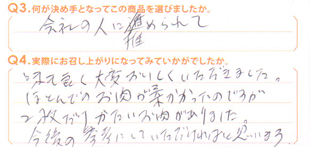 Q3.何が決め手となってこの商品を選びましたか。
会社の人に進められて
推
Q4.実際にお召し上がりになってみていかがでしたか。
味も良く大変おいしくいただきました。
ほとんどのお肉が柔かかったのですが
2枚だけかたいお肉がありました。
今後の参考にしていただければと思います